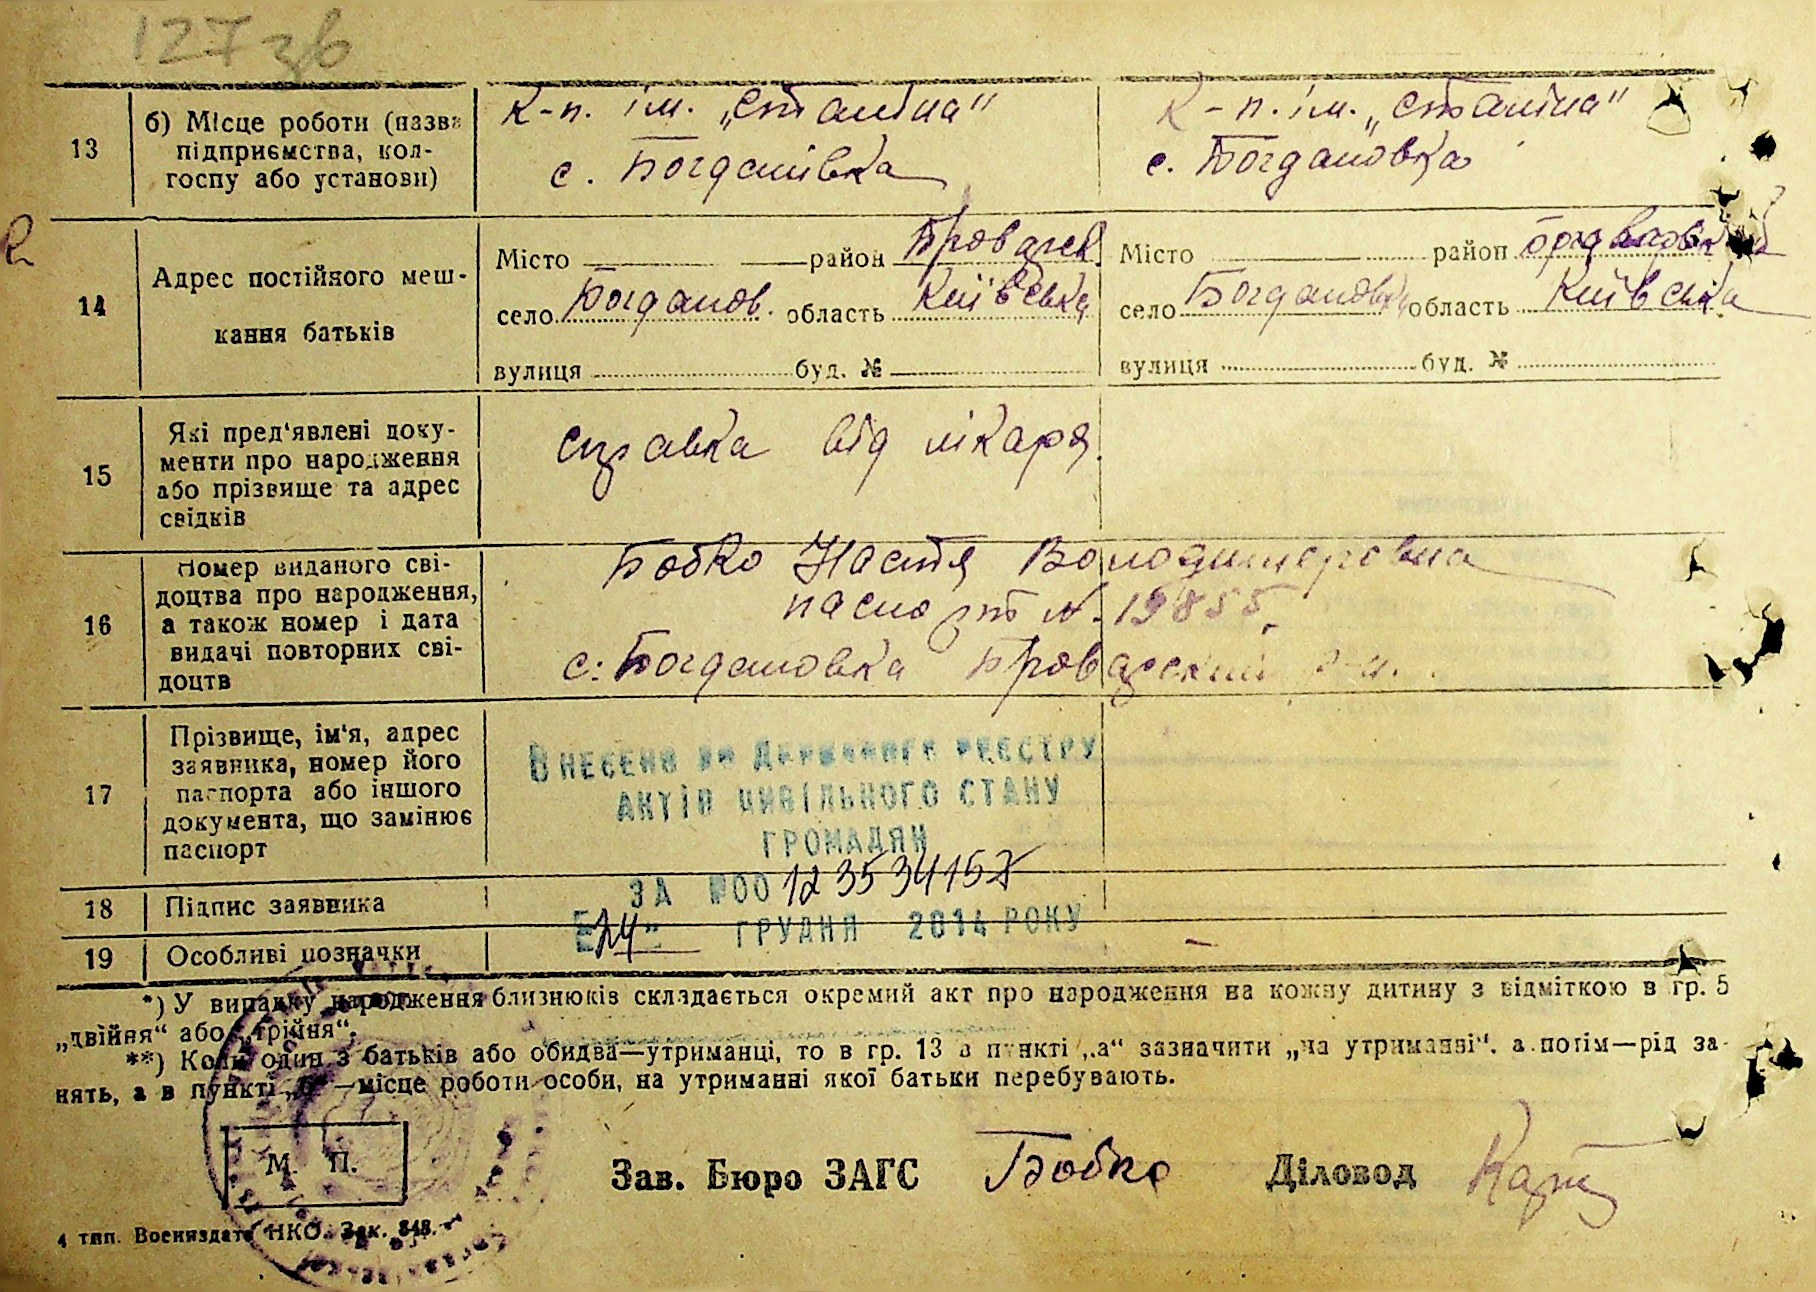 127 зв
13
б) Місце роботи (назва
підприємства, кол-
госпу або установи)
К-п. ім. „Сталіна"
с. Богданівка
К-п. ім. „Сталіна"
с. Богдановка
14
Адрес постійного меш-
кання батьків
Місто район Броварск.
село Богданов. область Київська
вулиця буд. №
Місто район
село Богдановка область Київська
вулиця буд. №
15
Які пред'явлені доку-
менти про народження
або прізвище та адрес
свідків
справка від лікаря.
16
Номер виданого сві-
доцтва про народження,
а також номер і дата
видачі повторних сві-
доцтв
Бобко Настя Володимеровна
паспорт N. 19855.
с. Богдановка Броварский р-н.
17
Прізвище, ім'я, адрес
заявника, номер його
паспорта або іншого
документа, що замінює
паспорт
Внесено до Державного реєстру
актів цивільного стану
громадян
за №00123534157
18
Підпис заявника
"24" грудня 2014 року
19
Особливі позначки
*) У випадку народження близнюків складається окремий акт про народження на кожну дитину з відміткою в гр. 5
„двійня“ або „трійня“.
**) Коли один з батьків або обидва—утриманці, то в гр. 13 в пункті „а“ зазначити „на утриманні“, а потім—рід за-
нять, а в пункті „б“—місце роботи особи, на утриманні якої батьки перебувають.
М. П.
Зав. Бюро ЗАГС Бобко Діловод
4 тип. Воениздата НКО. Зак. 848.